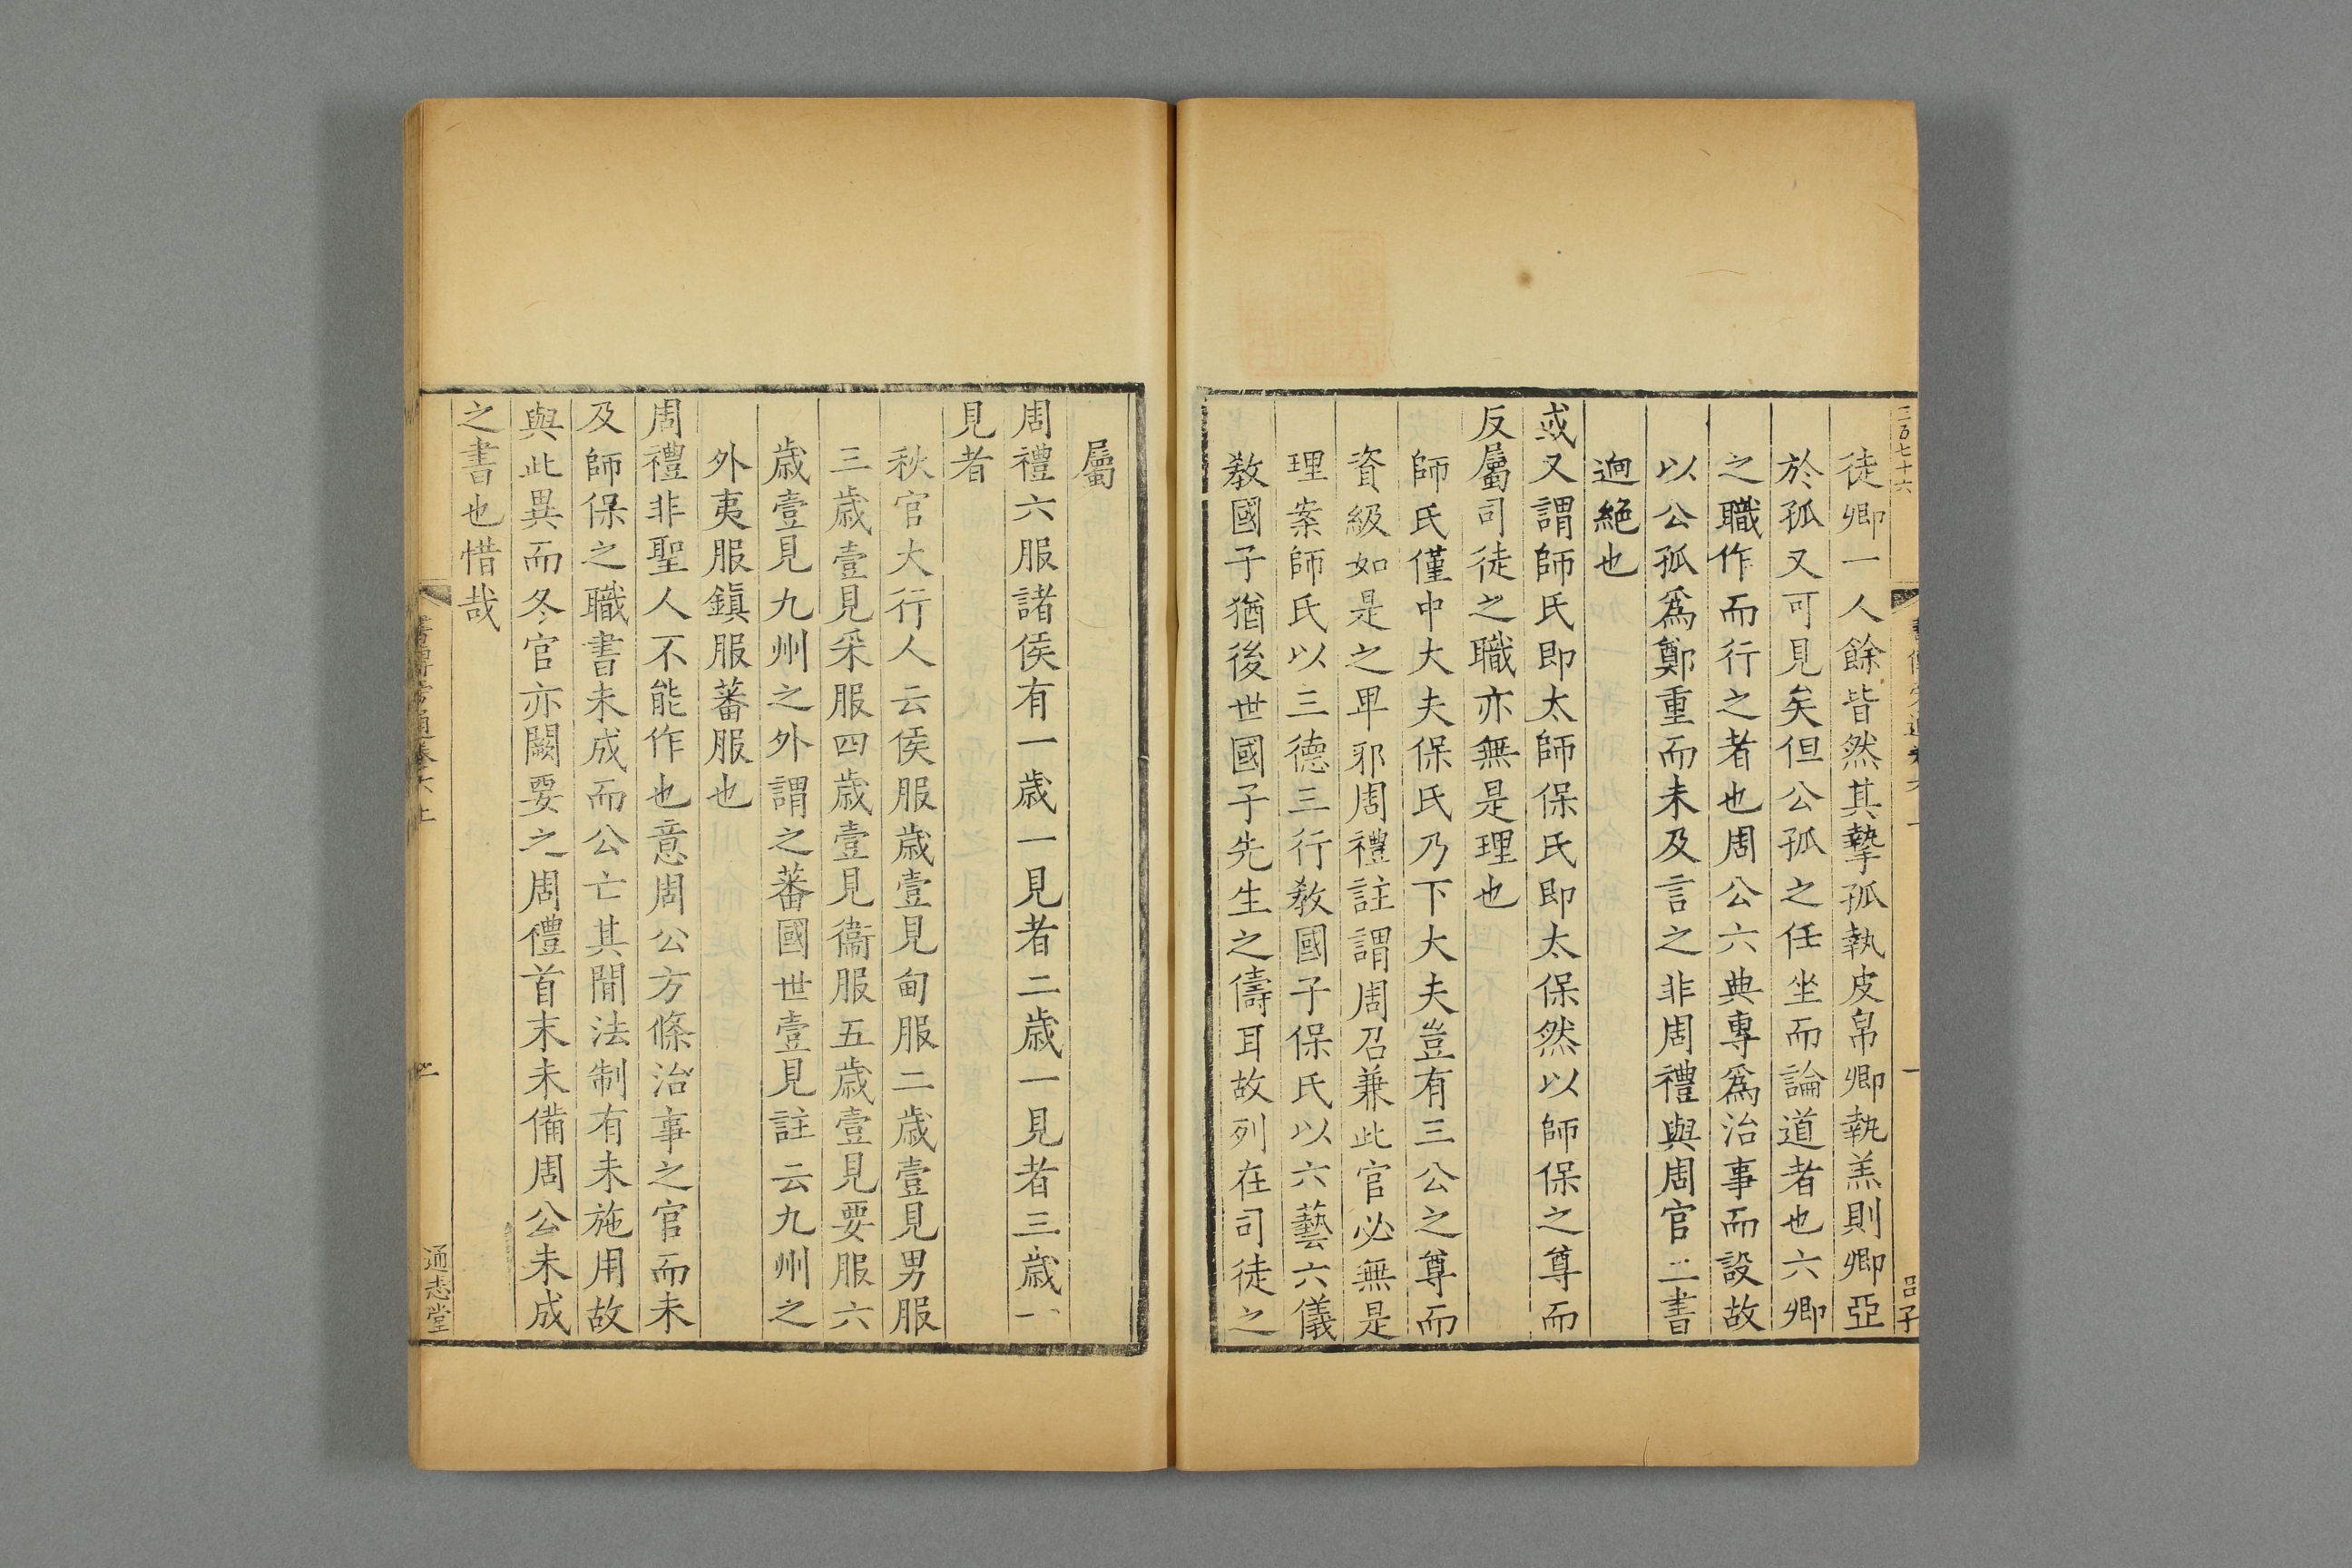 三百七十六
呂子
徒卿一人餘皆然其摯孤執皮帛卿執羔則卿亞
於孤又可見矣但公孤之任坐而論道者也六卿
之職作而行之者也周公六典專爲治事而設故
以公孤爲鄭重而未及言之非周禮與周官二書
逈絕也
或又謂師氏即太師保氏即太保然以師保之尊而
反屬司徒之職亦無是理也
師氏僅中大夫保氏乃下大夫豈有三公之尊而
資級如是之卑邪周禮註謂周召兼此官必無是
理案師氏以三德三行敎國子保氏以六藝六儀
敎國子猶後世國子先生之儔耳故列在司徒之
屬
周禮六服諸侯有一歲一見者二歲一見者三歲一
見者
秋官大行人云侯服歲壹見甸服二歲壹見男服
三歲壹見采服四歲壹見衞服五歲壹見要服六
歲壹見九州之外謂之蕃國世壹見註云九州之
外夷服鎮服蕃服也
周禮非聖人不能作也意周公方條治事之官而未
及師保之職書未成而公亡其閒法制有未施用故
與此異而冬官亦闕要之周禮首末未備周公未成
之書也惜哉
通志堂